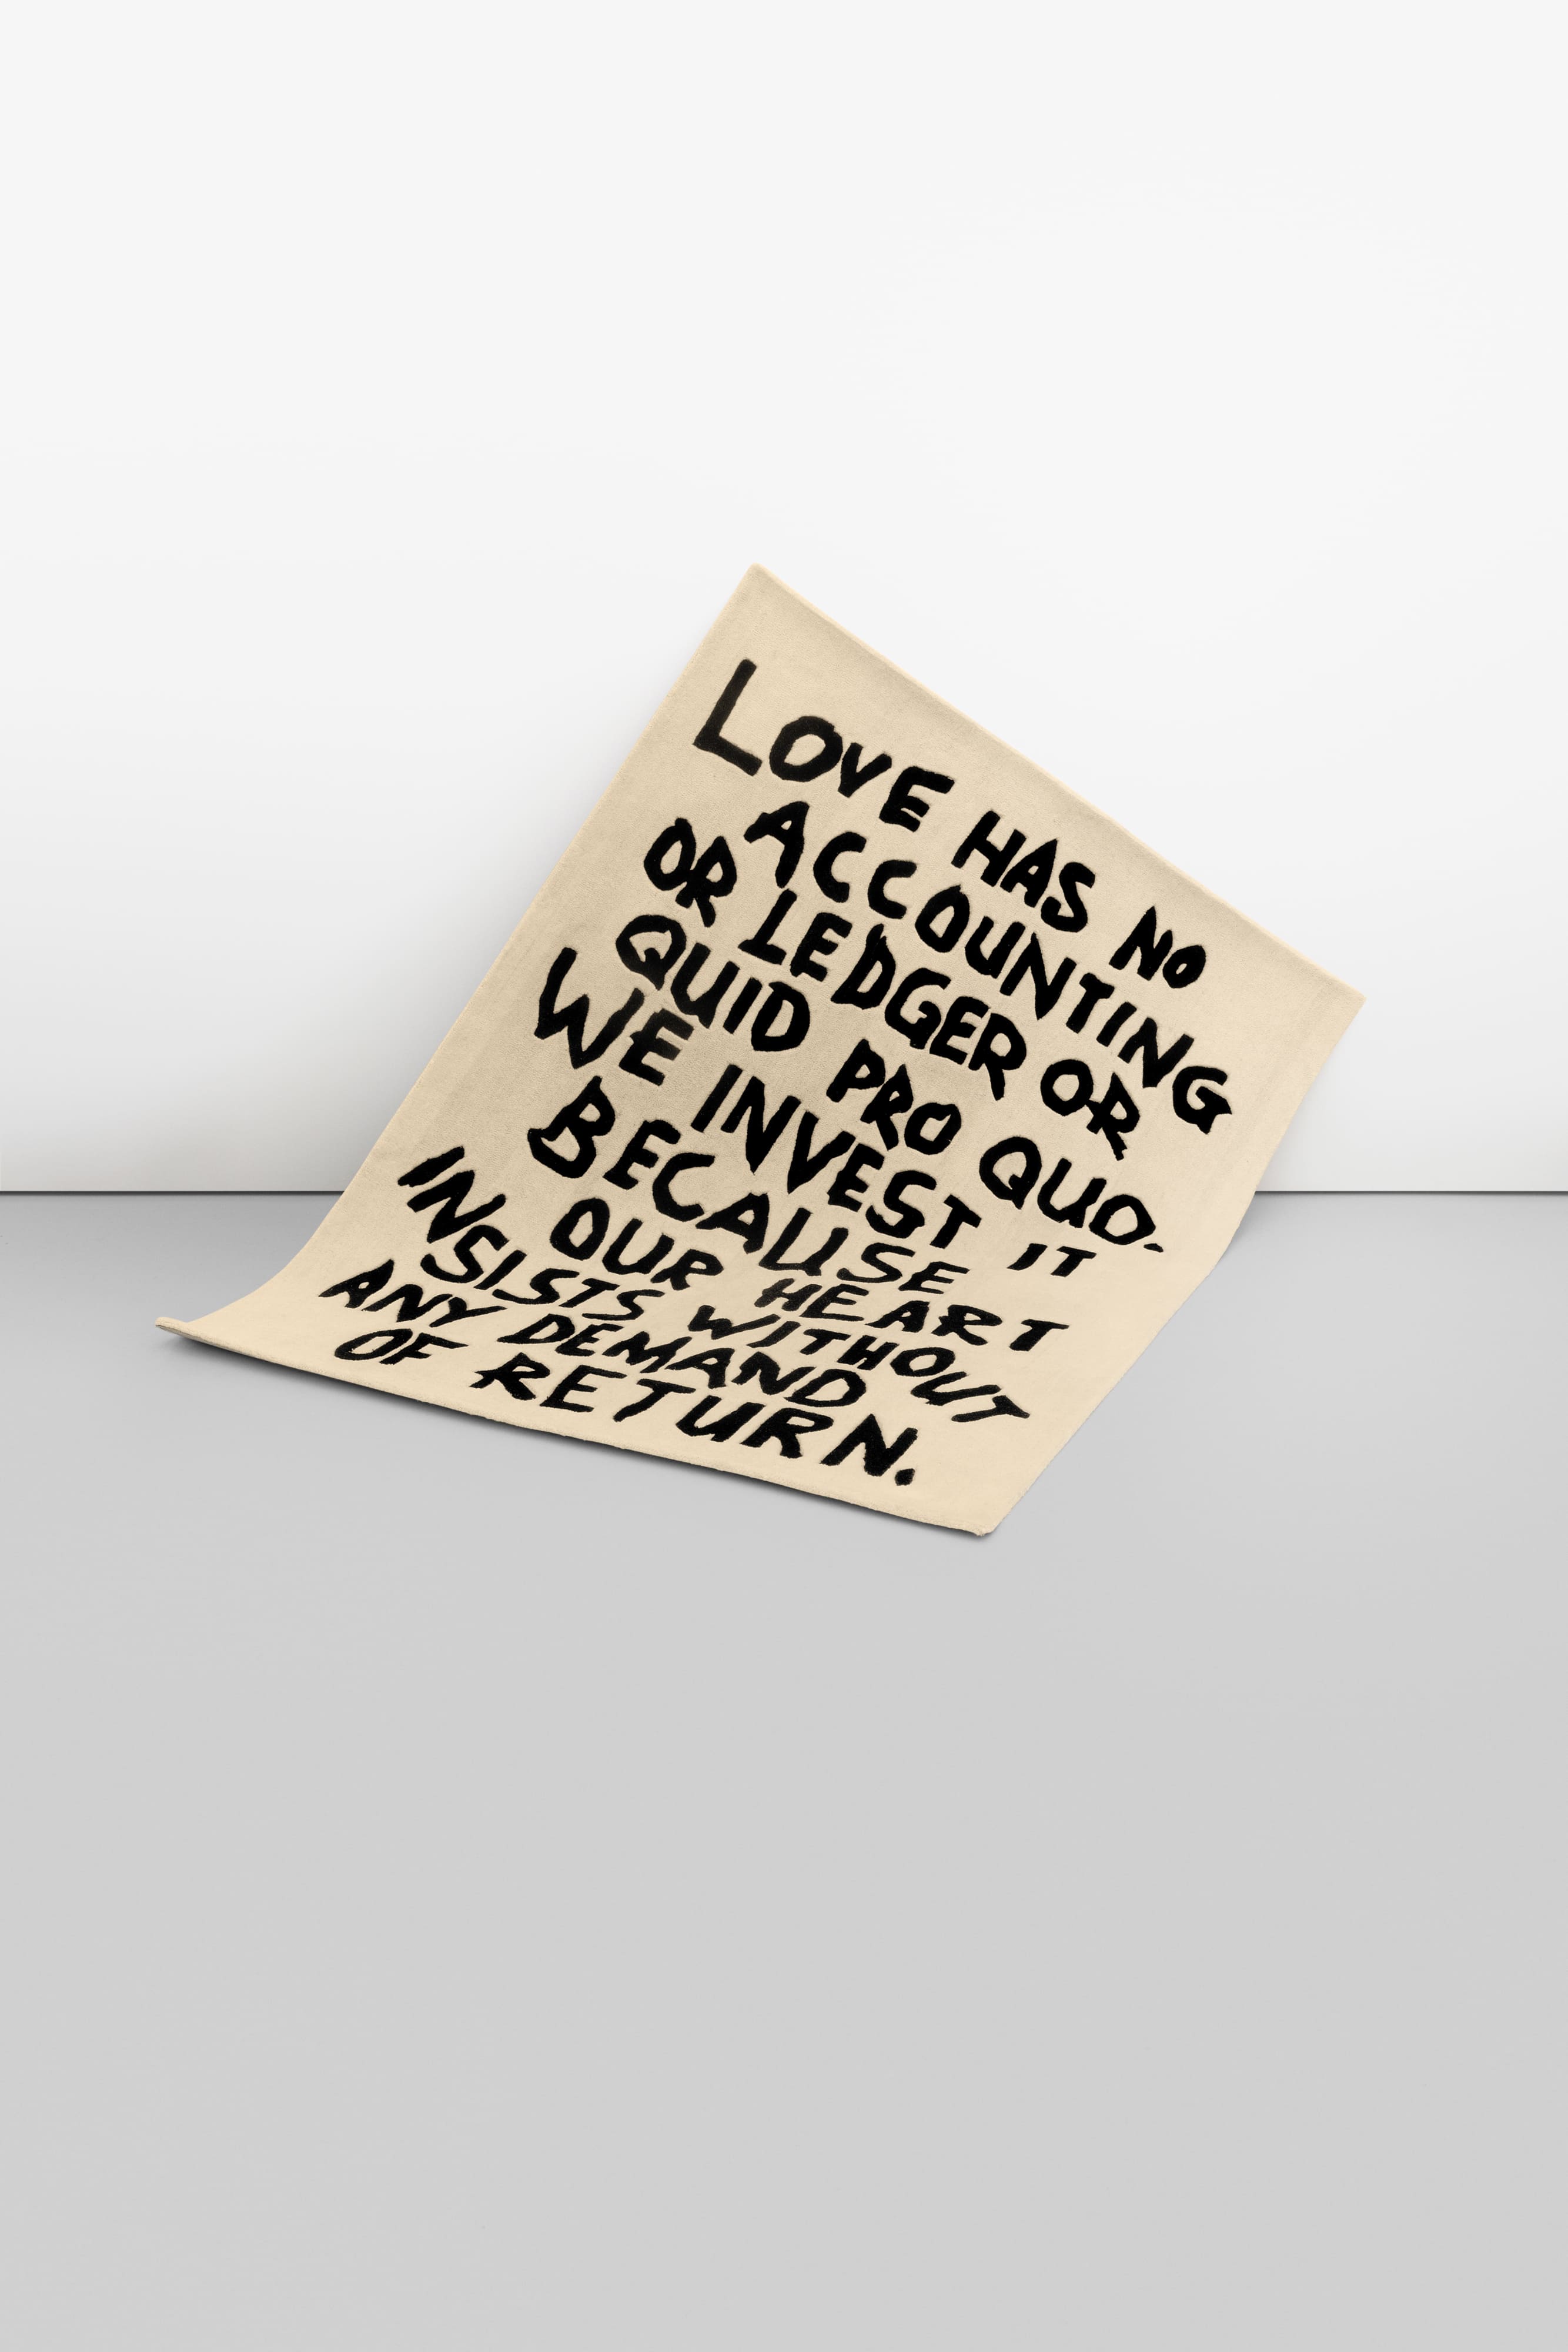 LOVE HAS NO
ACCOUNTING
OR LEDGER OR
QUID PRO QUO.
WE INVEST IT
BECAUSE
OUR HEART
INSISTS WITHOUT
ANY DEMAND
OF RETURN.